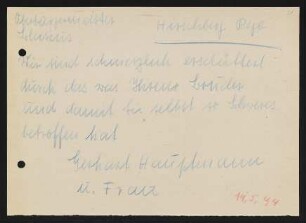 Hirschberg Rsgb
Wir sind schmerzlich erschüttert
durch das was Ihren Bruder
und damit Sie selbst so Schweres
betroffen hat
Gerhart Hauptmann
u. Frau
14.5.44